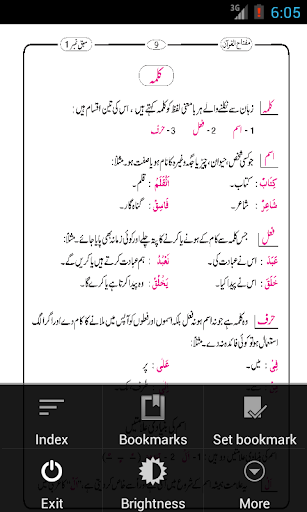 3G 6:05
مفتاح القرآن 9 سبق نمبر 1
کلمہ
کلمہ زبان سے نکلنے والے ہر بامعنی لفظ کو کلمہ کہتے ہیں، اس کی تین اقسام ہیں:
1- اسم 2- فعل 3- حرف
اسم جو کسی شخص، حیوان، چیز یا جگہ وغیرہ کا نام ہو یا صفت ہو۔ مثلاً:
كِتَابٌ : کتاب۔ اَلْقَلَمُ : قلم۔
شَاعِرٌ : شاعر۔ فَاسِقٌ : گناہ گار۔
فعل جس کلمہ سے کام کے ہونے یا کرنے کا پتہ چلے اور کوئی زمانہ بھی پایا جائے۔ مثلاً:
عَبَدَ : اس نے عبادت کی۔ نَعْبُدُ : ہم عبادت کرتے ہیں یا کریں گے۔
خَلَقَ : اس نے پیدا کیا۔ يَخْلُقُ : وہ پیدا کرتا ہے یا کرے گا۔
حرف وہ کلمہ ہے جو نہ اسم ہو نہ فعل بلکہ اسموں اور فعلوں کو آپس میں ملانے کا کام دے اور اگر الگ
استعمال ہو تو کوئی فائدہ نہ دے۔ مثلاً:
فِيْ : میں۔ عَلٰى : پر
Index Bookmarks Set bookmark
Exit Brightness More